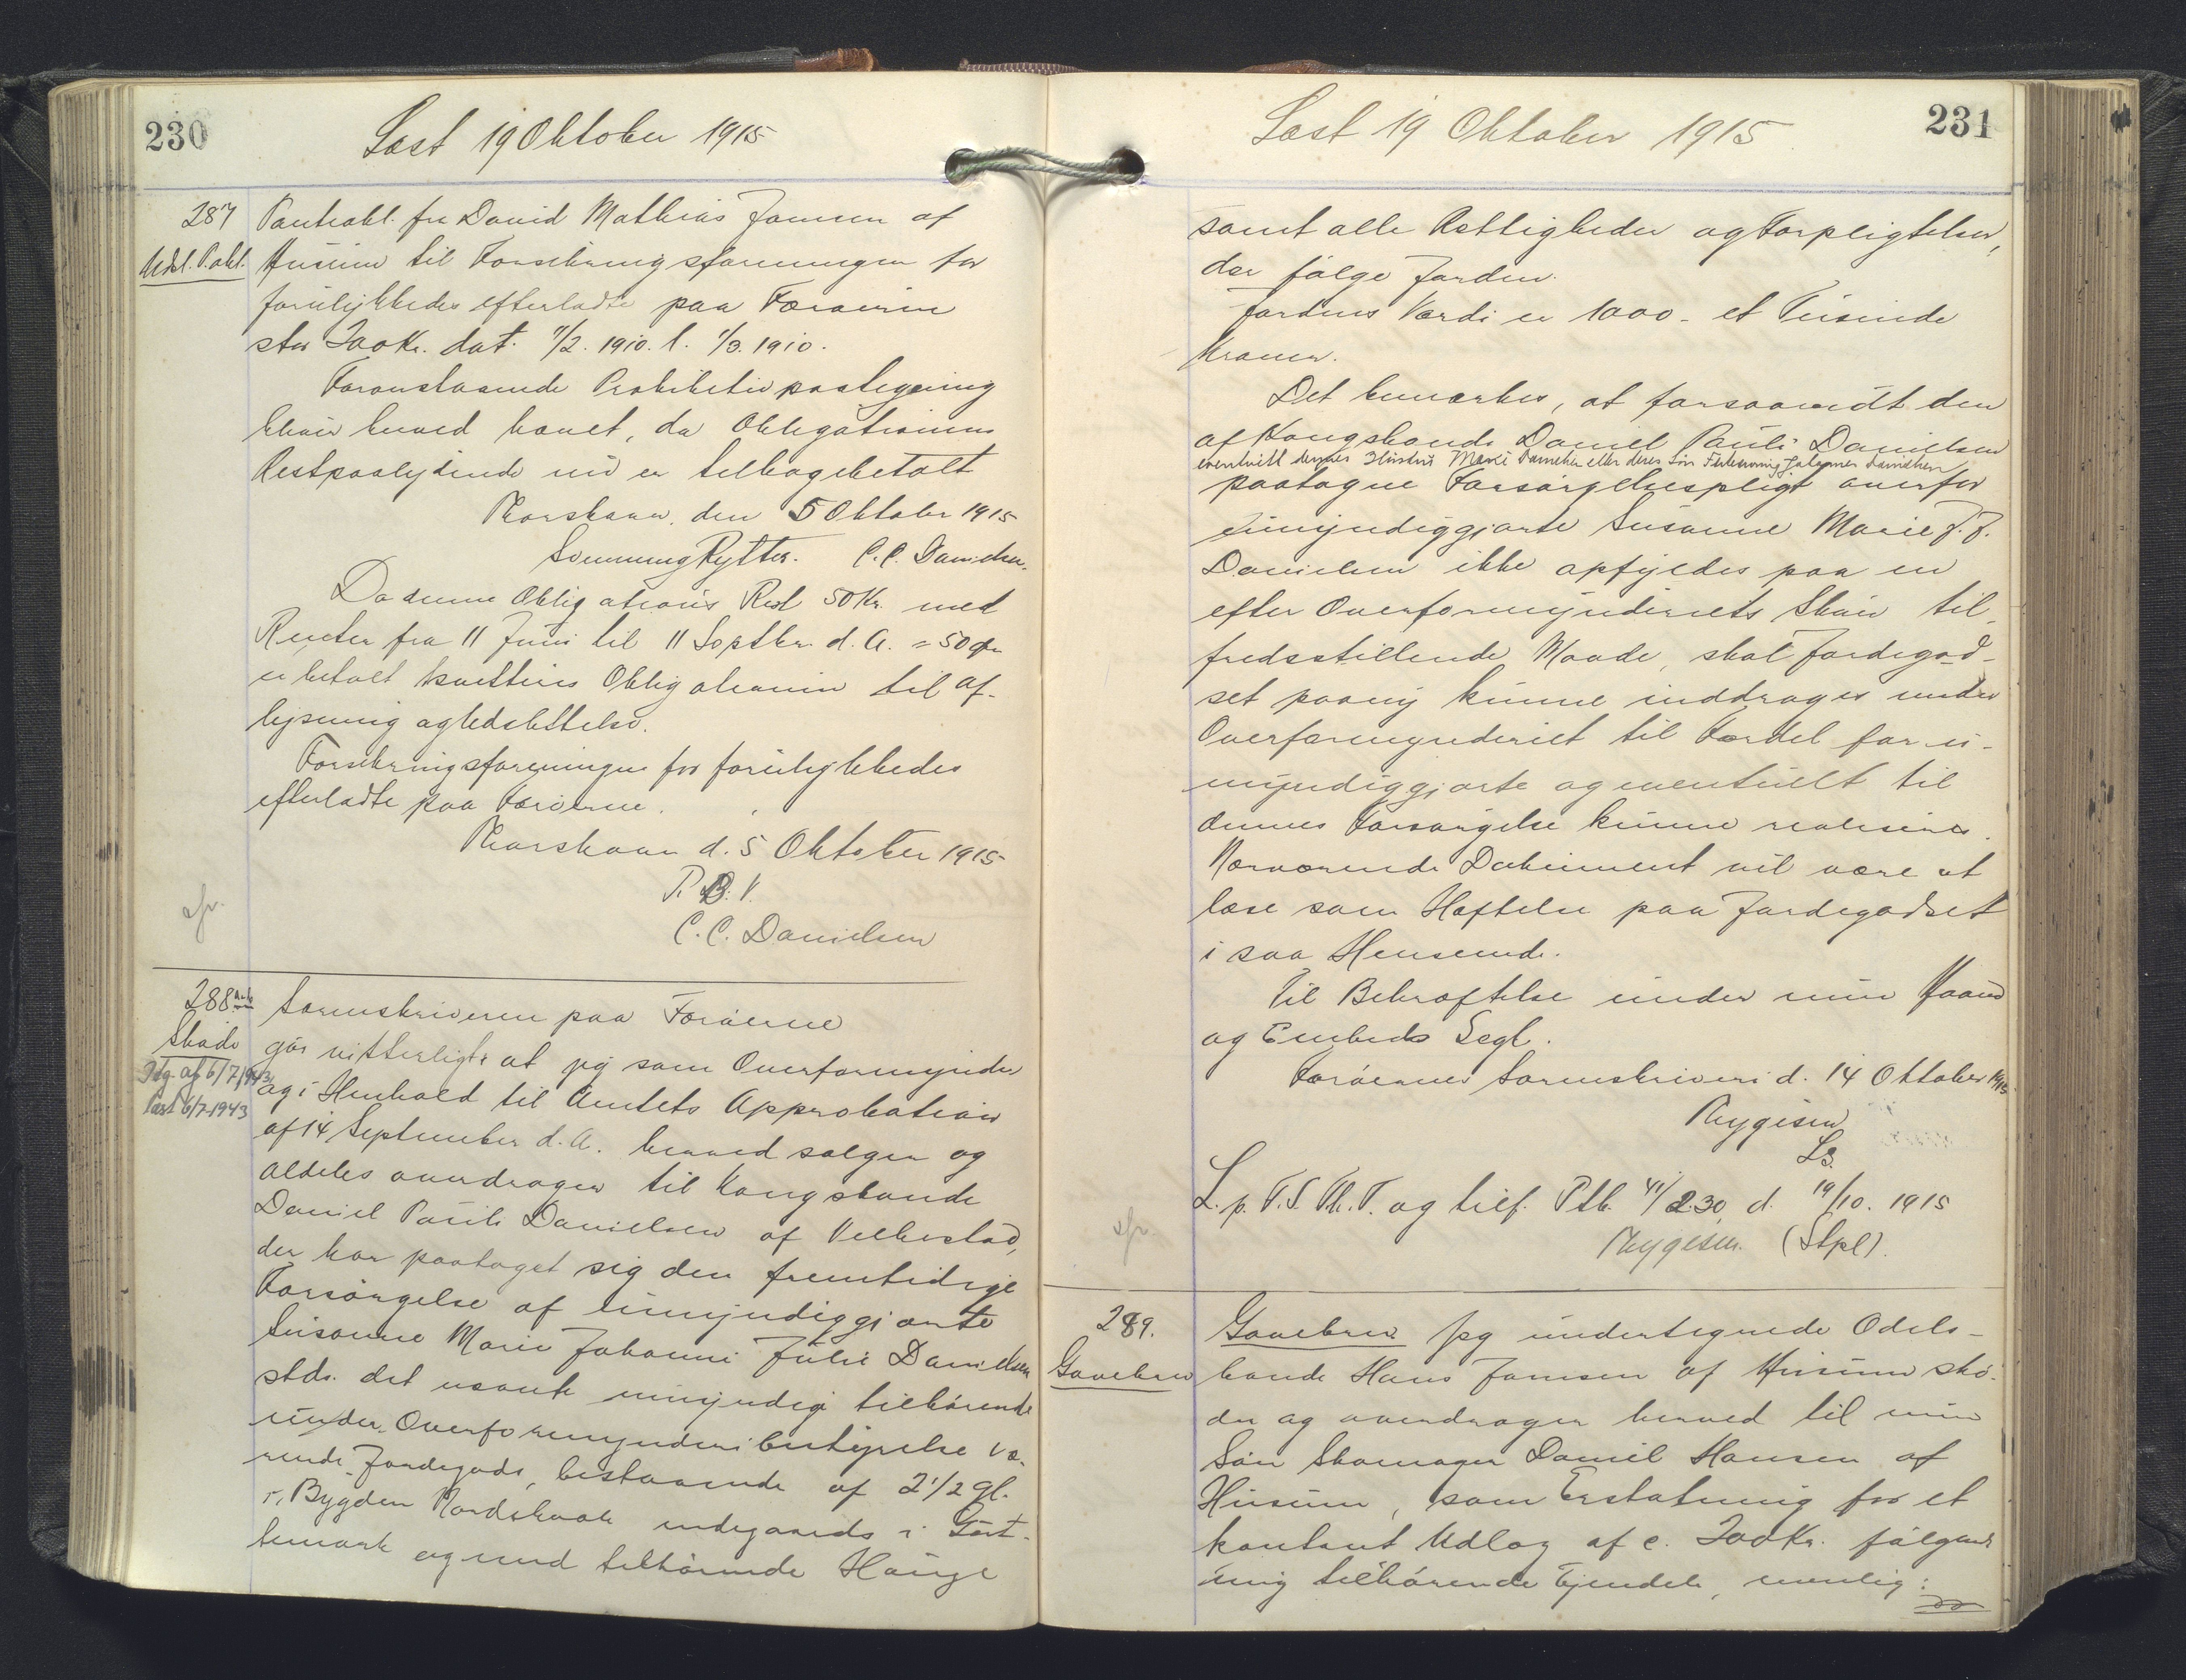 230
Læst 19 Oktober 1915
287
Udsl. P.obl.
Panteobl. fra David Mathias Jomsen af
Husum til Forsikringsforeningen for
forulykkedes efterladte paa Færøerne
stor 200 Kr. dat. 7/2. 1910. l. 1/3. 1910.
Foranstaaende Prohibitivpaategning
bliver herved hævet, da Obligationens
Restpaalydende nu er tilbagebetalt
Thorshavn, den 5 Oktober 1915
Svenning Rytter. C.C. Danielsen.
Da denne Obligations Rest 50 Kr. med
Renter fra 11 Juni til 11 Septbr. d. A. = 50 Øre
er betalt kvitteres Obligationen til af-
lysning og Udslettelse.
Forsikringsforeningen for forulykkedes
efterladte paa Færøerne.
Thorshavn d. 5 Oktober 1915
P. B. V.
C.C. Danielsen
afr.
288
Skøde
Pdg. af 6/7 1943
læst 6/7 1943
Sorenskriveren paa Færøerne
gør vitterligt: at jeg som Overformynder
og i Henhold til Amtets Approbation
af 14 September d. A. herved sælger og
aldeles overdrager til Kongsbonde
Daniel Pauli Danielsen af Velbestad,
der har paataget sig den fremtidige
Forsørgelse af umyndiggjorte
Susanne Marie Johanne Julie Danielsen
stds. det nævnte umyndige tilhørende
under Overformynderibestyrelse væ-
rende Jordegods, bestaaende af 2 1/2 Gl.
i Bygden Nordskaale indegaards i Gørt-
temark og med tilhørende Hauge
231
Læst 19 Oktober 1915
samt alle Rettigheder og Forpligtelser,
der følge Jorden.
Jordens Værdi er 1000 - et Tusinde
Kroner.
Det bemærkes, at forsaavidt den
af Kongsbonde Daniel Pauli Danielsen
eventuelt dennes Hustru Marie Danielsen eller deres Søn Johannes Danielsen
paatagne Forsørgelsespligt overfor
umyndiggjorte Susanne Marie J. J.
Danielsen ikke opfyldes paa en
efter Overformynderiets Skøn til-
fredsstillende Maade, skal Jordegod-
set paany kunne inddrages under
Overformynderiet til Fordel for u-
myndiggjorte og eventuelt til
dennes Forsørgelse kunne realiseres.
Nærværende Dokument vil være at
læse som Hæftelse paa Jordegodset
i saa Henseende.
Til Bekræftelse under min Haand
og Embeds Segl.
Færøernes Sorenskriveri d. 14 Oktober 1915
Thygesen
LS.
L. p. F.S. Th. T. og tilf. Ptb. 41/230, d. 19/10. 1915
Thygesen. (Stpl).
afr.
289.
Gavebrev
Gavebrev Jeg undertegnede Odels-
bonde Hans Jomsen af Husum skø-
der og overdrager herved til min
Søn Skomager Daniel Hansen af
Husum, som Erstatning for et
kontant Udlæg af c. 200 Kr. følgende
mig tilhørende Ejendele, nemlig: